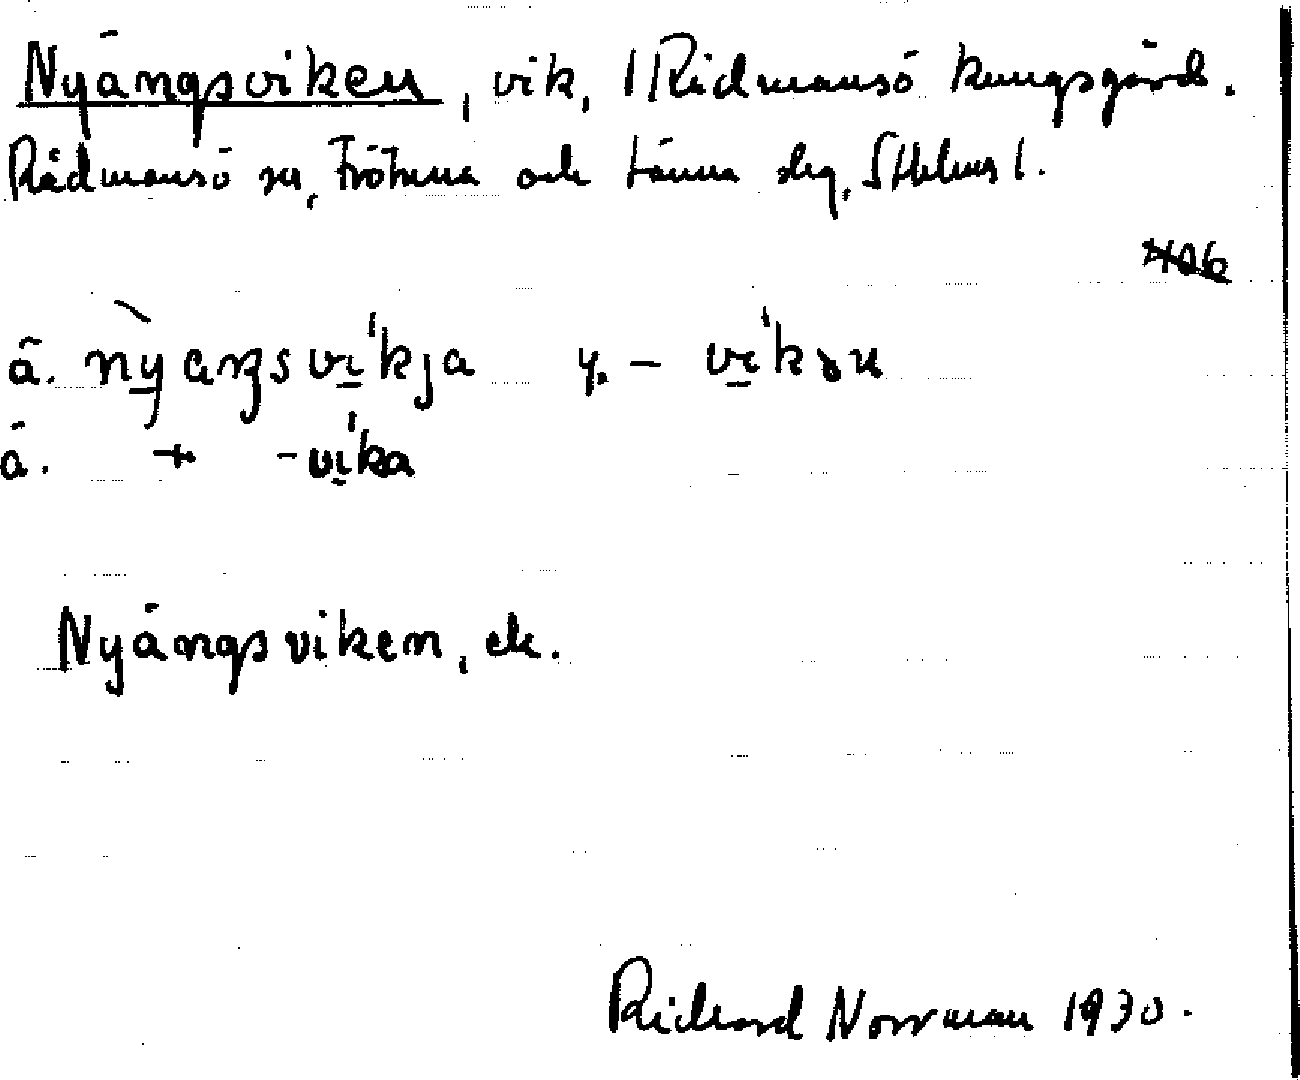 Nyängsviken, vik, 1 Rådmansö kungsgård.
Rådmansö sn, Frötuna och Länna slg, Sthlms l.
ä. nyaŋsvikja y. – vikən
ä. + -vika
Nyängsviken, ek.
Richard Norrman 1930.